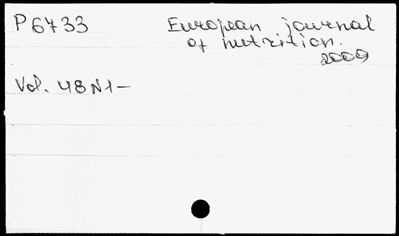 P6733 European journal
of nutrition.
2009
Vol. 48 N1-